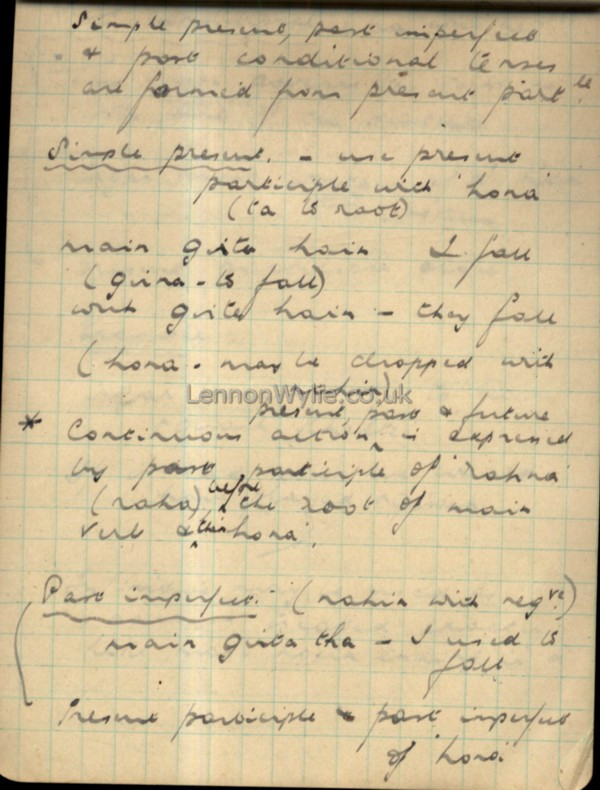 Simple present, past imperfect
& past conditional tenses
are formed from present part le.
Simple present. - use present
participle with 'hona'
(ta to root)
main girta hain I fall
(girna - to fall)
woh girte hain - they fall
(hona - may be dropped with
nahin)
LennonWylie.co.uk
present, past & future
* Continuous action, is expressed
by past participle of 'rahna'
(raha) before the root of main
verb & then 'hona'.
Past imperfect. (nahin with neg ve.)
main girta tha - I used to
fall
Present participle & past imperfect
of 'hona'